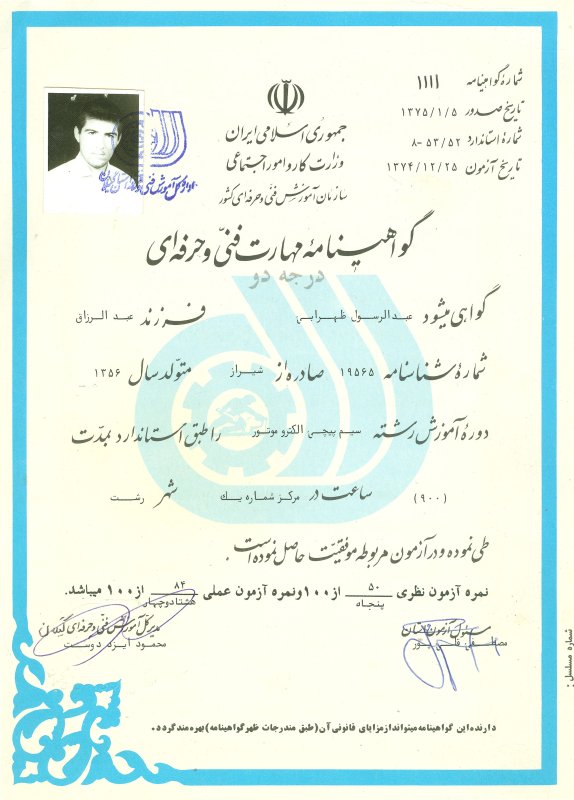 شمارهٔ گواهینامه ۱۱۱۱
تاریخ صدور ۱۳۷۵/۱/۵
شمارهٔ استاندارد ۸-۵۳/۵۲
تاریخ آزمون ۱۳۷۴/۱۲/۲۵
جمهوری اسلامی ایران
وزارت کار و امور اجتماعی
سازمان آموزش فنی و حرفه‌ای کشور
اداره کل آموزش فنی و حرفه‌ای
گواهینامهٔ مهارت فنّی و حرفه‌ای
درجه دو
گواهی میشود عبدالرسول ظهرابی فرزند عبدالرزاق
شمارهٔ شناسنامه ۱۹۵۶۵ صادره از شیراز متولّد سال ۱۳۵۶
دورهٔ آموزش رشته سیم پیچی الکتروموتور را طبق استاندارد بمدّت
(۹۰۰) ساعت در مرکز شماره یك شهر رشت
طی نموده و در آزمون مربوطه موفقیّت حاصل نموده است.
نمره آزمون نظری ۵۰ پنجاه از ۱۰۰ ونمره آزمون عملی ۸۴ هشتادوچهار از ۱۰۰ میباشد.
مسئول آزمون استان
مصطفی قلی پور
مدیر کل آموزش فنّی و حرفه‌ای گیلان
محمود ایزد دوست
دارنده این گواهینامه میتواند از مزایای قانونی آن (طبق مندرجات ظهر گواهینامه) بهره مند گردد.
شماره مسلسل: